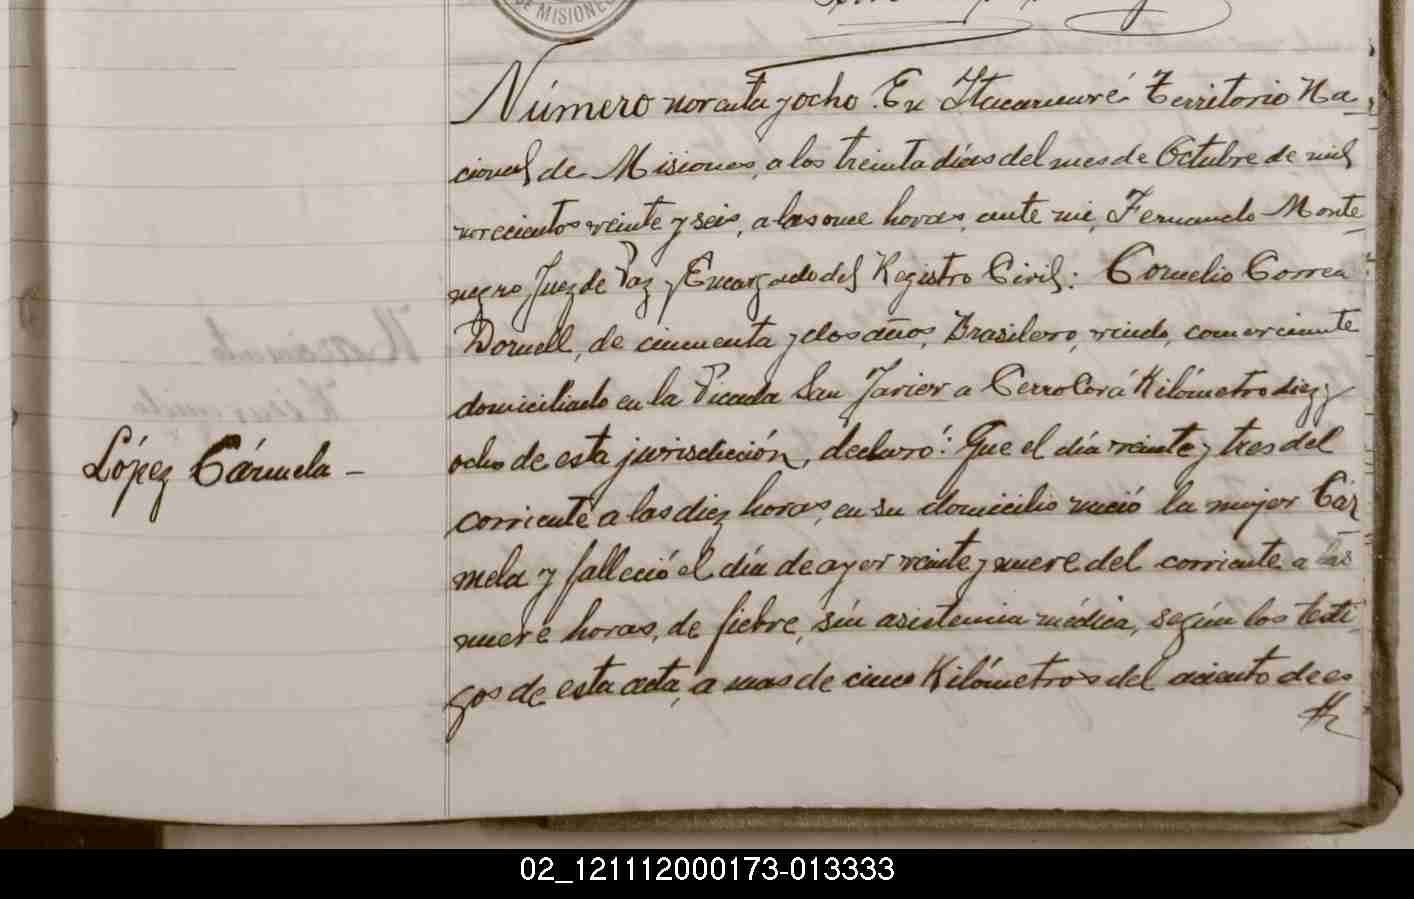 DE MISIONES
Número noventa y ocho. En Itacaruaré Territorio Na-
cional de Misiones, a los treinta días del mes de Octubre de mil
novecientos veinte y seis, a las once horas, ante mi, Fernando Monte-
negro Juez de Paz y Encargado del Registro Civil: Cornelio Correa
Dornell, de cincuenta y dos años, Brasilero, viudo, comerciante
domiciliado en la Picada San Javier a Cerro Corá Kilómetro diez y
ocho de esta jurisdicción, declaró: Que el día veinte y tres del
López Cármela -
corriente a las diez horas, en su domicilio nació la mujer Cár-
mela y falleció el día de ayer veinte y nueve del corriente a las
nueve horas, de fiebre, sin asistencia médica, según los testi-
gos de esta acta, a mas de cinco Kilómetros del asiento de es
02_121112000173-013333